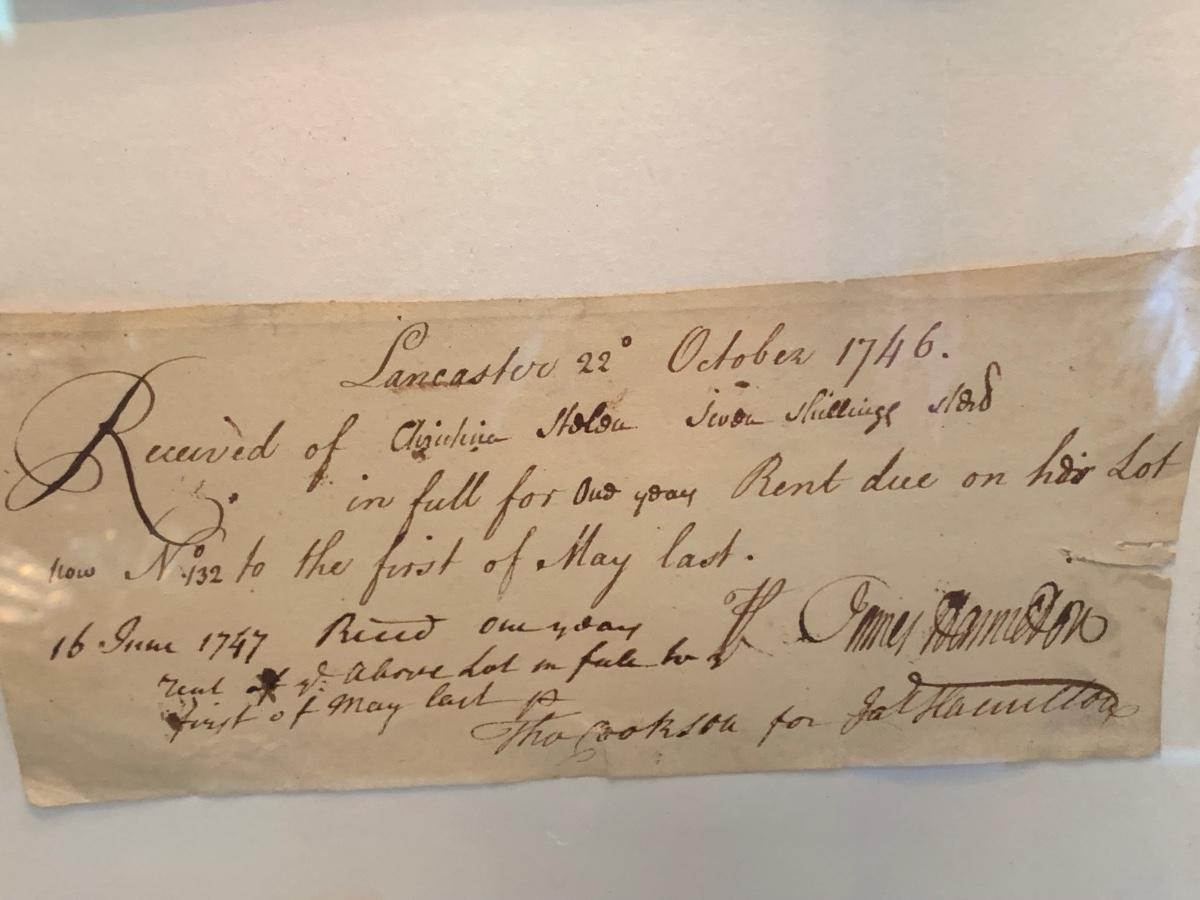 Lancaster 22° October 1746.
Received of Christina Stelen Seven shillings sterd
in full for One year Rent due on her Lot
now No 132 to the first of May last.
P James Hamilton
16 June 1747 Recd One year
rent of ye Above Lot in full to ye
first of May last P
Tho Cookson for Jas Hamilton